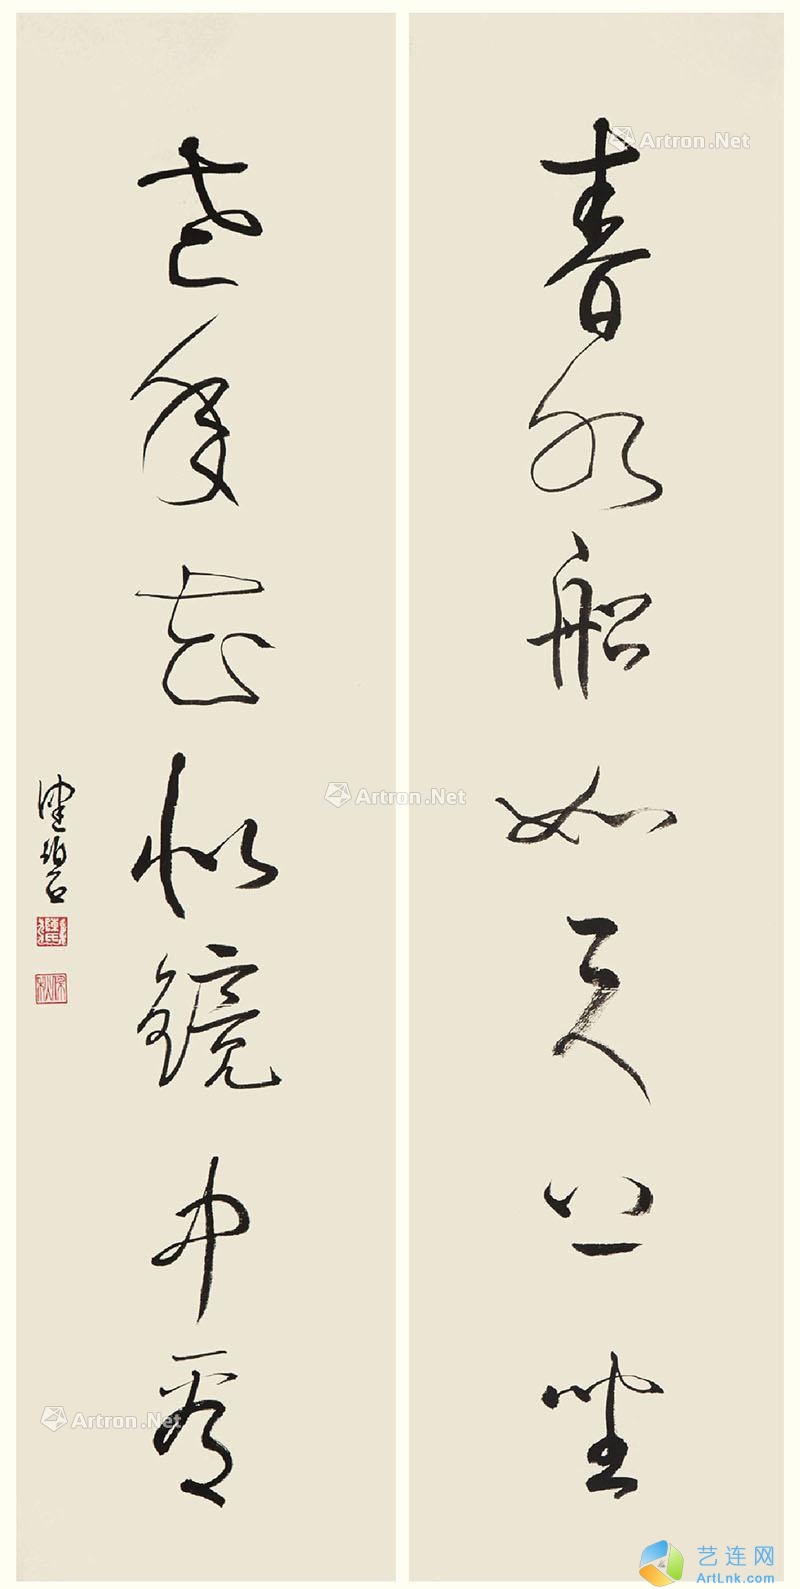 春水船如天上坐
老年花似鏡中看
健碧
Artron.Net
Artron.Net
Artron.Net
Artron.Net
艺连网
ArtLnk.com